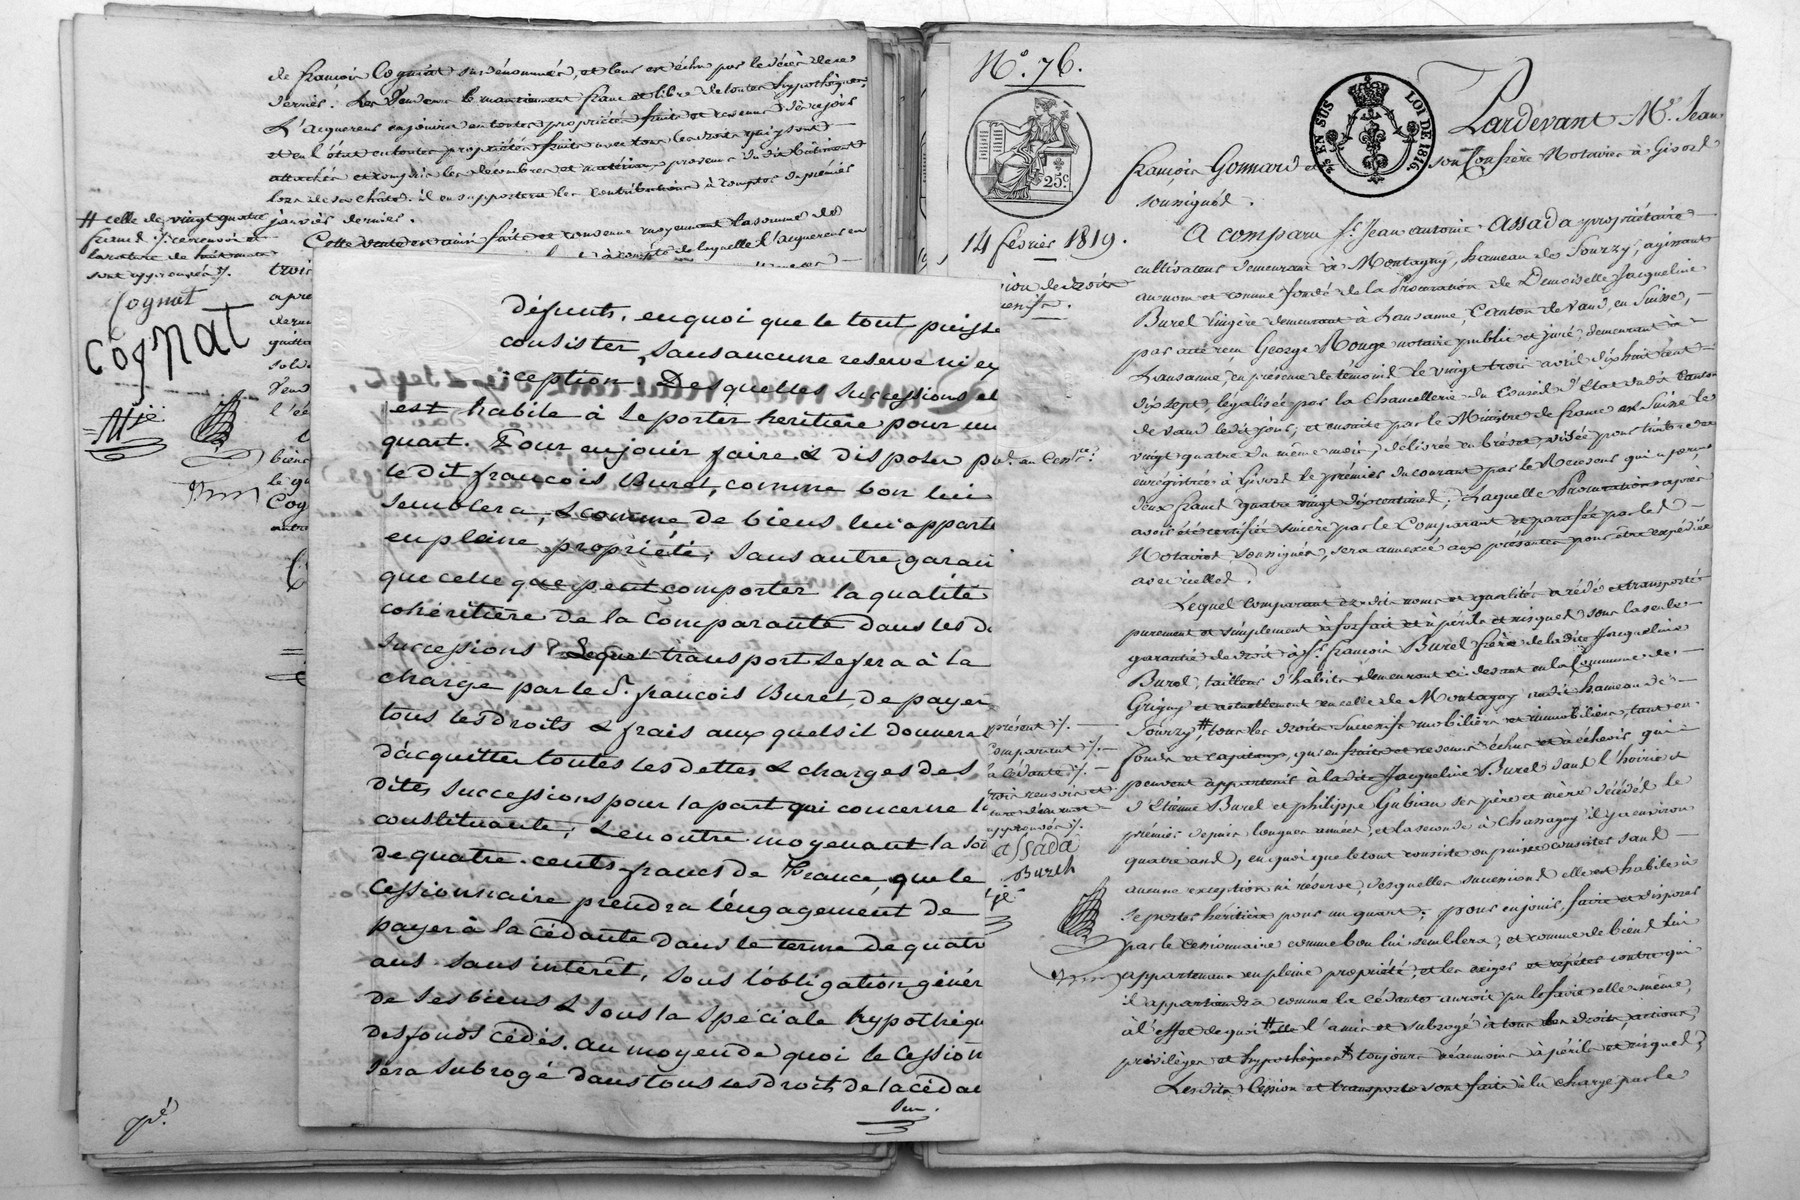 de françois Cognat susdénommés, et leur est échu par le décès de ce
dernier. Les Vendeurs le maintiennent franc et libre de toutes hypothèques,
L'acquereur en jouira en toute propriété, fruits et revenus dès ce jour
attachés et compris les décombres et matériaux provenus du dit bâtiment
lors de sa chûte. il en supportera les contributions à compter du prémier
janvier dernier.
Cette vente est ainsi faite et consenue moyennant la somme de
à compte de laquelle l'acquereur en
# celle de vingt quatre
francs
sont approuvés ./.
Cognat
Cognat
trois
Défunts, en quoi que le tout puisse
consister, sans aucune reserve ni ex
ception. Desquelles successions el
est habile à se porter heritière pour un
quart. Pour en jouir faire & disposer p
le dit françois Burel, comme bon lui
semblera, & comme de biens lui apparte
en pleine propriété; sans autre garan
que celle que peut comporter la qualité
cohéritière de la Comparante dans les d
successions & Lequel transport se fera à la
charge par le S.r françois Burel, de payer
tous les droits & frais aux quels il donnera
d'acquitter toutes les dettes & charges des
dites successions pour la part qui concerne l
constituante; & en outre moyenant la so
de quatre-cents francs de France, que le
Cessionnaire prendra l'engagement de
payer à la cédante dans le terme de quatr
ans sans intérêt, sous l'obligation génér
de ses biens & sous la spéciale hypothèqu
des fonds cédés. au moyen de quoi le Cession
sera subrogé dans tous les droits de la cédan
N.º 76.
25.c
14 février 1819.
25 EN SUS LOI DE 1816.
Pardevant M.e Jean
françois Gonnard et son Confrère Notaires à Givord
soussignés.
A comparu S.r Jean antoine Assada propriétaire
cultivateur demeurant à Montagny, hameau de Sourzy, agissant
au nom et comme fondé de la Procuration de Demoiselle Jacqueline
Burel lingère demeurant à Lausanne, Canton de Vaud, en Suisse,
par acte reçu George Rouge notaire public et juré, demeurant à
Lausanne, en présence de témoins le vingt trois avril dix huit cent
dix sept, légalisée par la Chancellerie du Conseil d'Etat du dit Canton
de Vaud le dit jour, et ensuite par le Ministre de france en Suisse le
vingt quatre du même mois; délivrée en brevet, visée pour timbre et
enregistrée à Givord le prémier du courant par le Receveur qui a perçu
deux francs quatre vingt dix centimes; Laquelle Procuration après
avoir été certifiée sincère par le Comparant et parafée par les
Notaires soussignés, sera annexée aux présentes pour être expédiée
avec icelles.
Lequel comparant ès dits noms et qualités a cédé et transporté
purement et simplement à forfait et à périls et risques sous la seule
garantie de droit à S.r françois Burel frère de la dite Jacqueline
Burel, tailleur d'habits demeurant ci devant en la Commune de
Grigny et actuellement en celle de Montagny au dit hameau de
Sourzy #, tous les droits successifs mobiliers et immobiliers, tant en
fonds et capitaux, qu'en fruits et revenus échus et à échoir qui
peuvent appartenir à la dite Jacqueline Burel dans l'hoirie
d'Etienne Burel et philippe Gubian ses père et mère décédés le
prémier depuis longues années, et la seconde à Chassagny il y a environ
quatre ans, en quoi que le tout consiste ou puisse consister sans
aucune exception ni réserve, desquelles successions elle est habile à
se porter héritière pour un quart; pour en jouir, faire et disposer
par le cessionnaire comme bon lui semblera, et comme de biens lui
appartenans en pleine propriété, et les exiger et répéter contre qui
il appartiendra comme la Cédante auroit pu le faire elle-même,
à l'effet de quoi # elle l'a mis et subrogé à tous ses droits, actions,
privilèges et hypothèques # toujours néanmoins à périls et risques;
Lesdits Cession et transports sont faits à la charge par le
présent ./.
comparant ./.
la Cédante ./.
assada
Burel